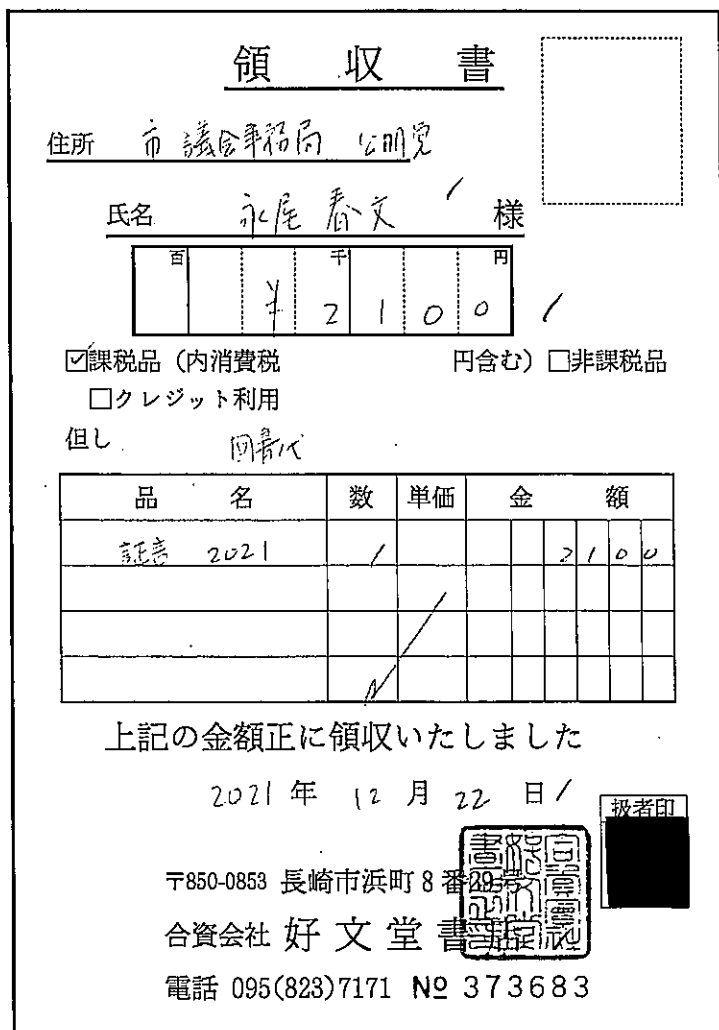 領収書
住所 市議会事務局 公明党
氏名 永尾春文 様
百 千 円
¥2100
☑課税品（内消費税 円含む）□非課税品
□クレジット利用
但し 図書代
品名 数 単価 金額
証言 2021 1 2100
上記の金額正に領収いたしました
2021年 12月 22日
扱者印
〒850-0853 長崎市浜町8番29号
合資会社 好文堂書店
電話 095(823)7171 № 373683